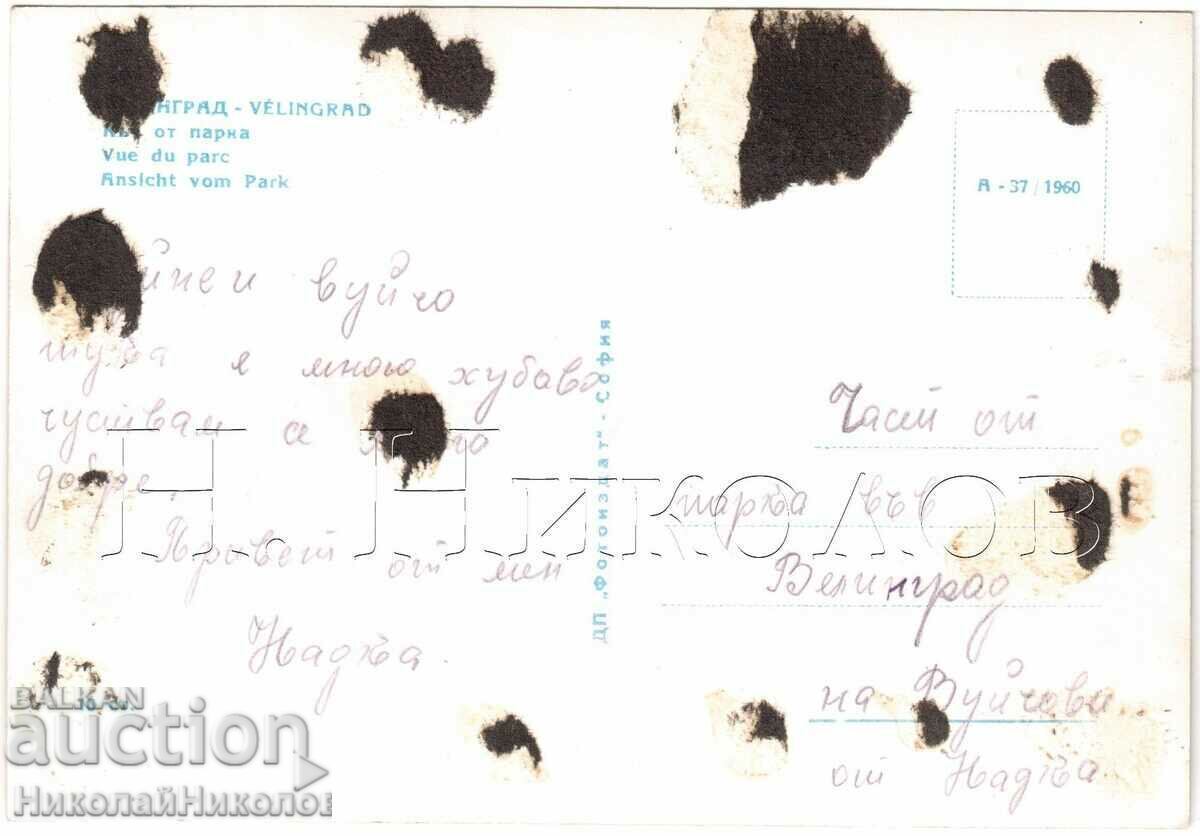 НГРАД - VÉLINGRAD
от парка
Vue du parc
Ansicht vom Park
A - 37 / 1960
и вуйчо
тука е много хубаво
чуствам се
добре,
Привет от мен
Надка.
ДП „Фотоиздат" - София
Част от
парка във
Велинград
на Вуйчови
от Надка
Н. Николов
BALKAN
auction
НиколайНиколов